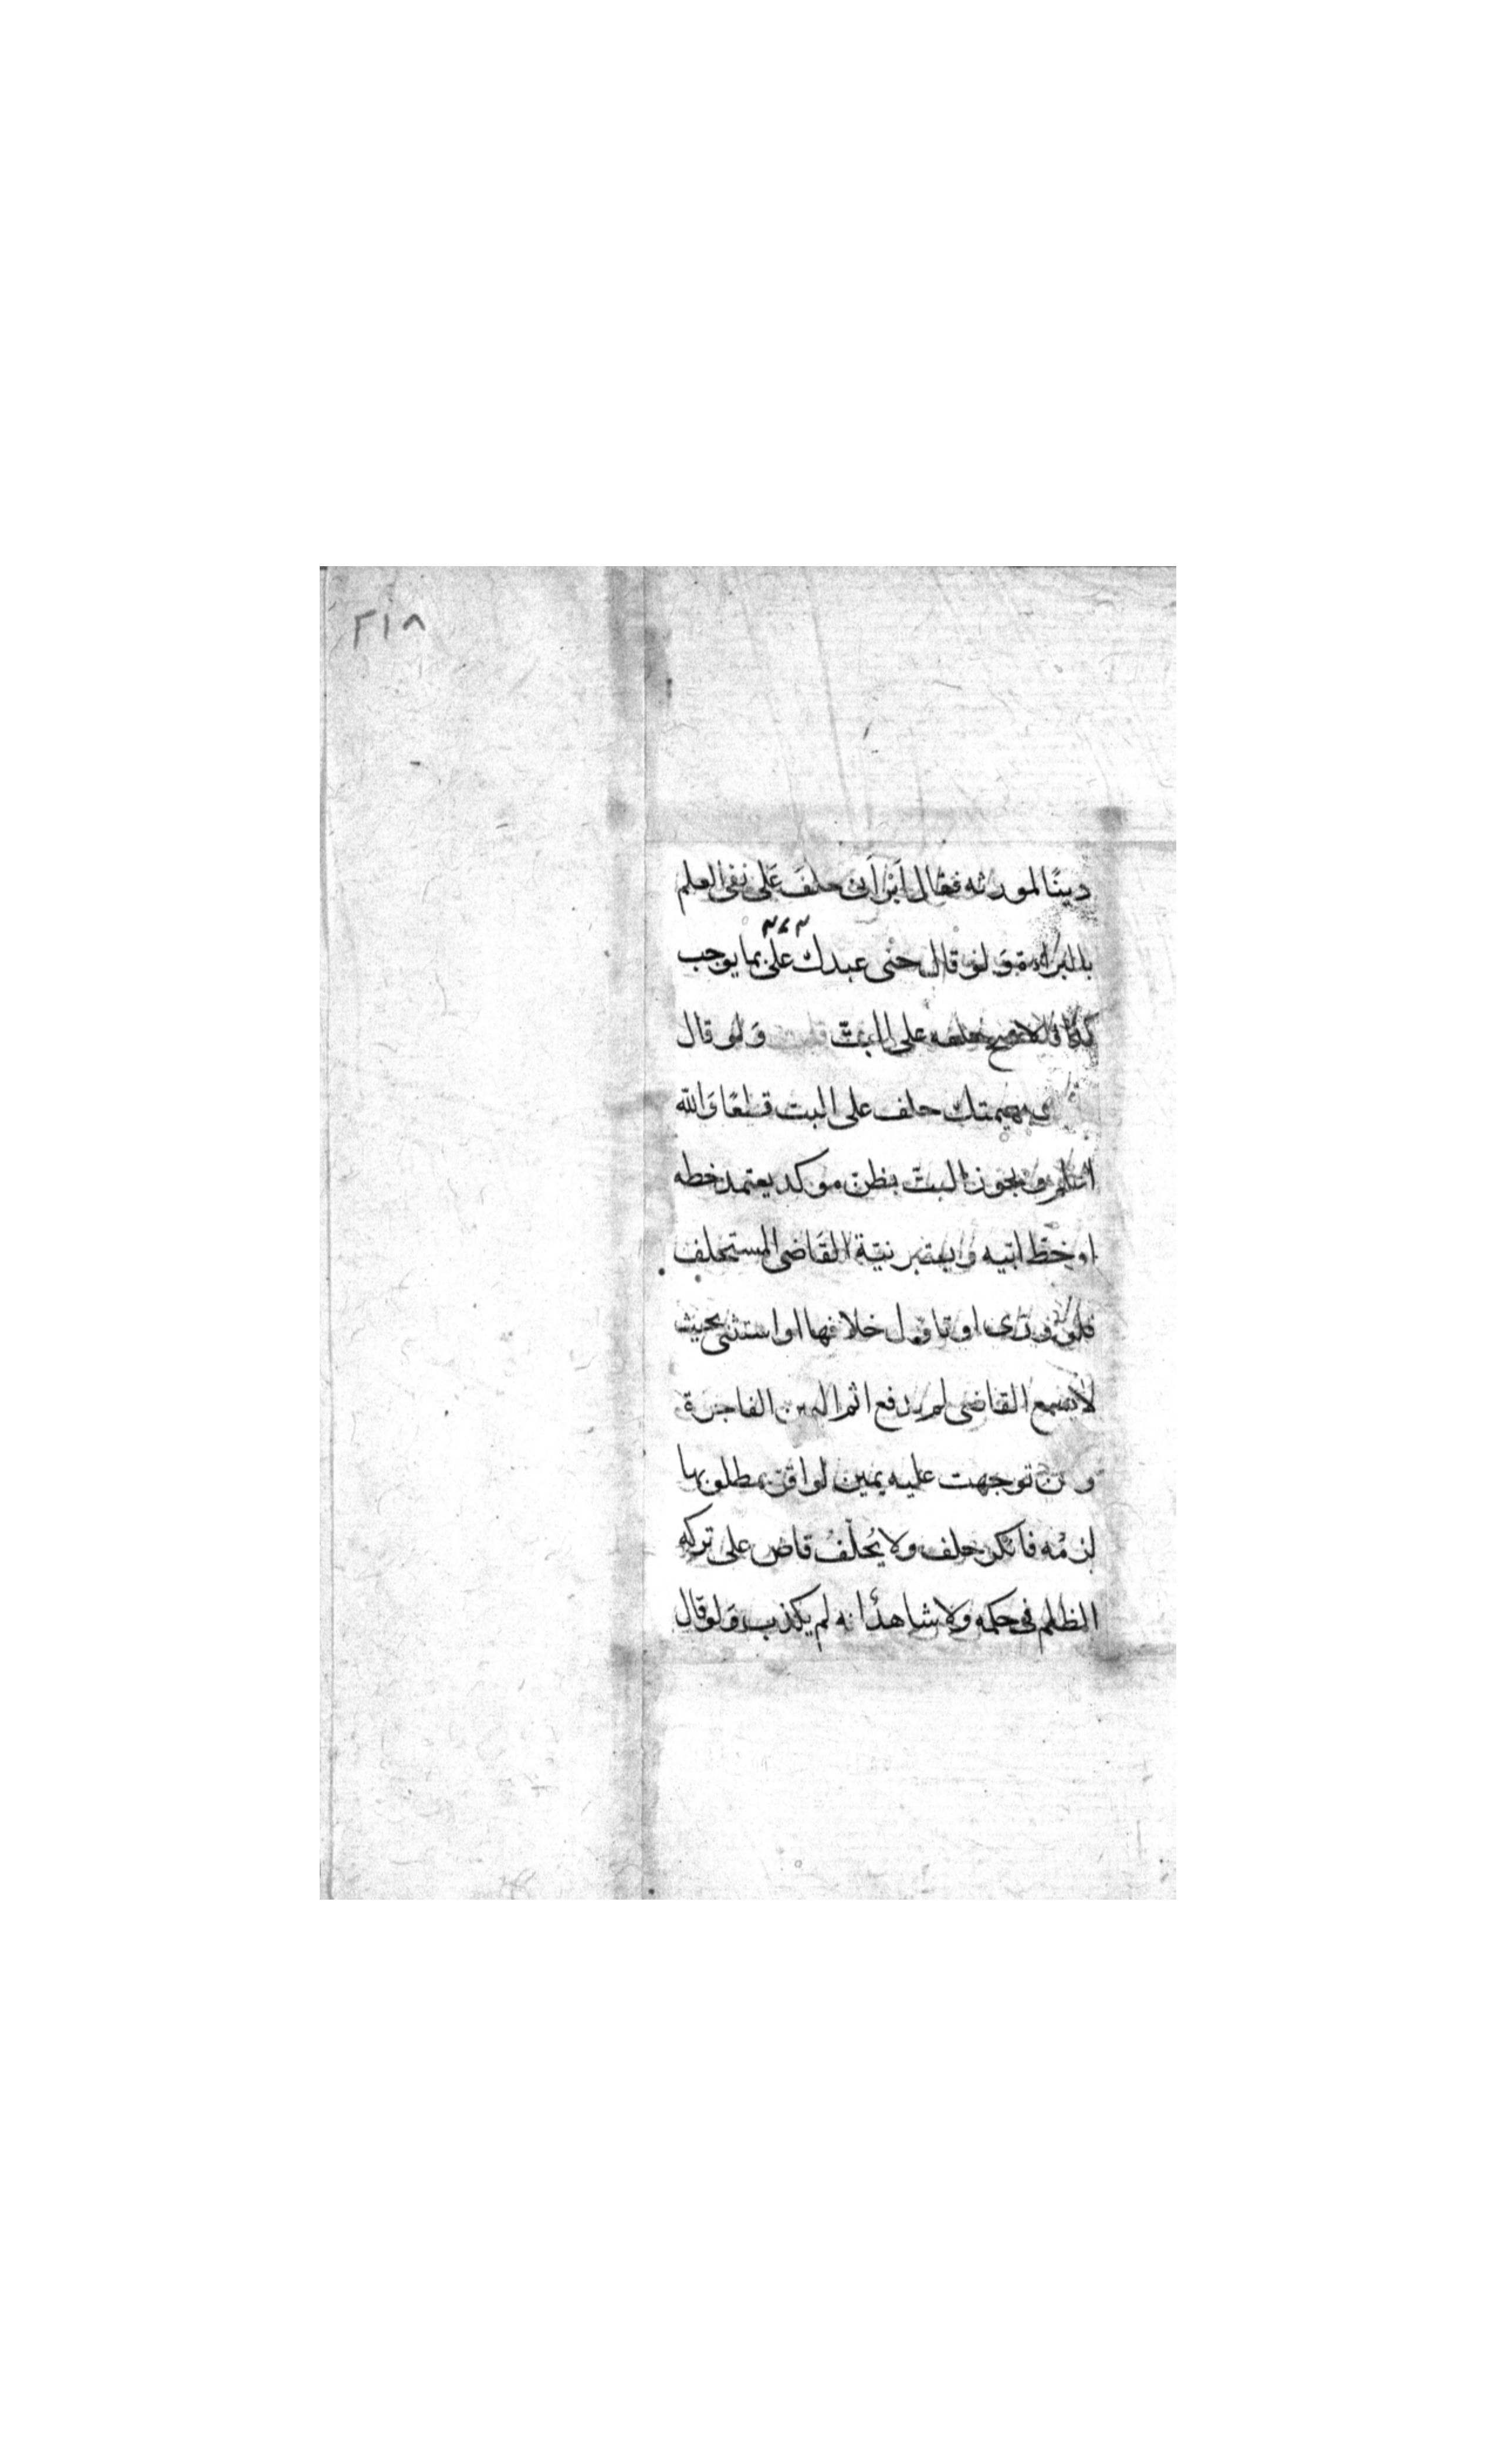 ٢١٨
دينًا لمورثه فقال ابرأني حلف على نفي العلم
بالبراءة ولو قال جنى عبدك علي بما يوجب
كذا فالاصح حلفه على البتّ قلت ولو قال
بهيمتك حلف على البت قطعًا والله
اعلم ويجوز البت بظن موكد يعتمد خطه
او خطّ ابيه ويعتبر نيّة القاضى المستحلف
فلو ورّى او تاول خلافها او استثنى بحيث
لا يسمع القاضى لم يدفع اثم اليمين الفاجرة
ومن توجهت عليه يمين لو اقرّ بمطلوبها
لزمه فانكر حلف ولا يُحلّفُ قاض على تركه
الظلم في حكمه ولا شاهدٌ انه لم يكذب ولو قال